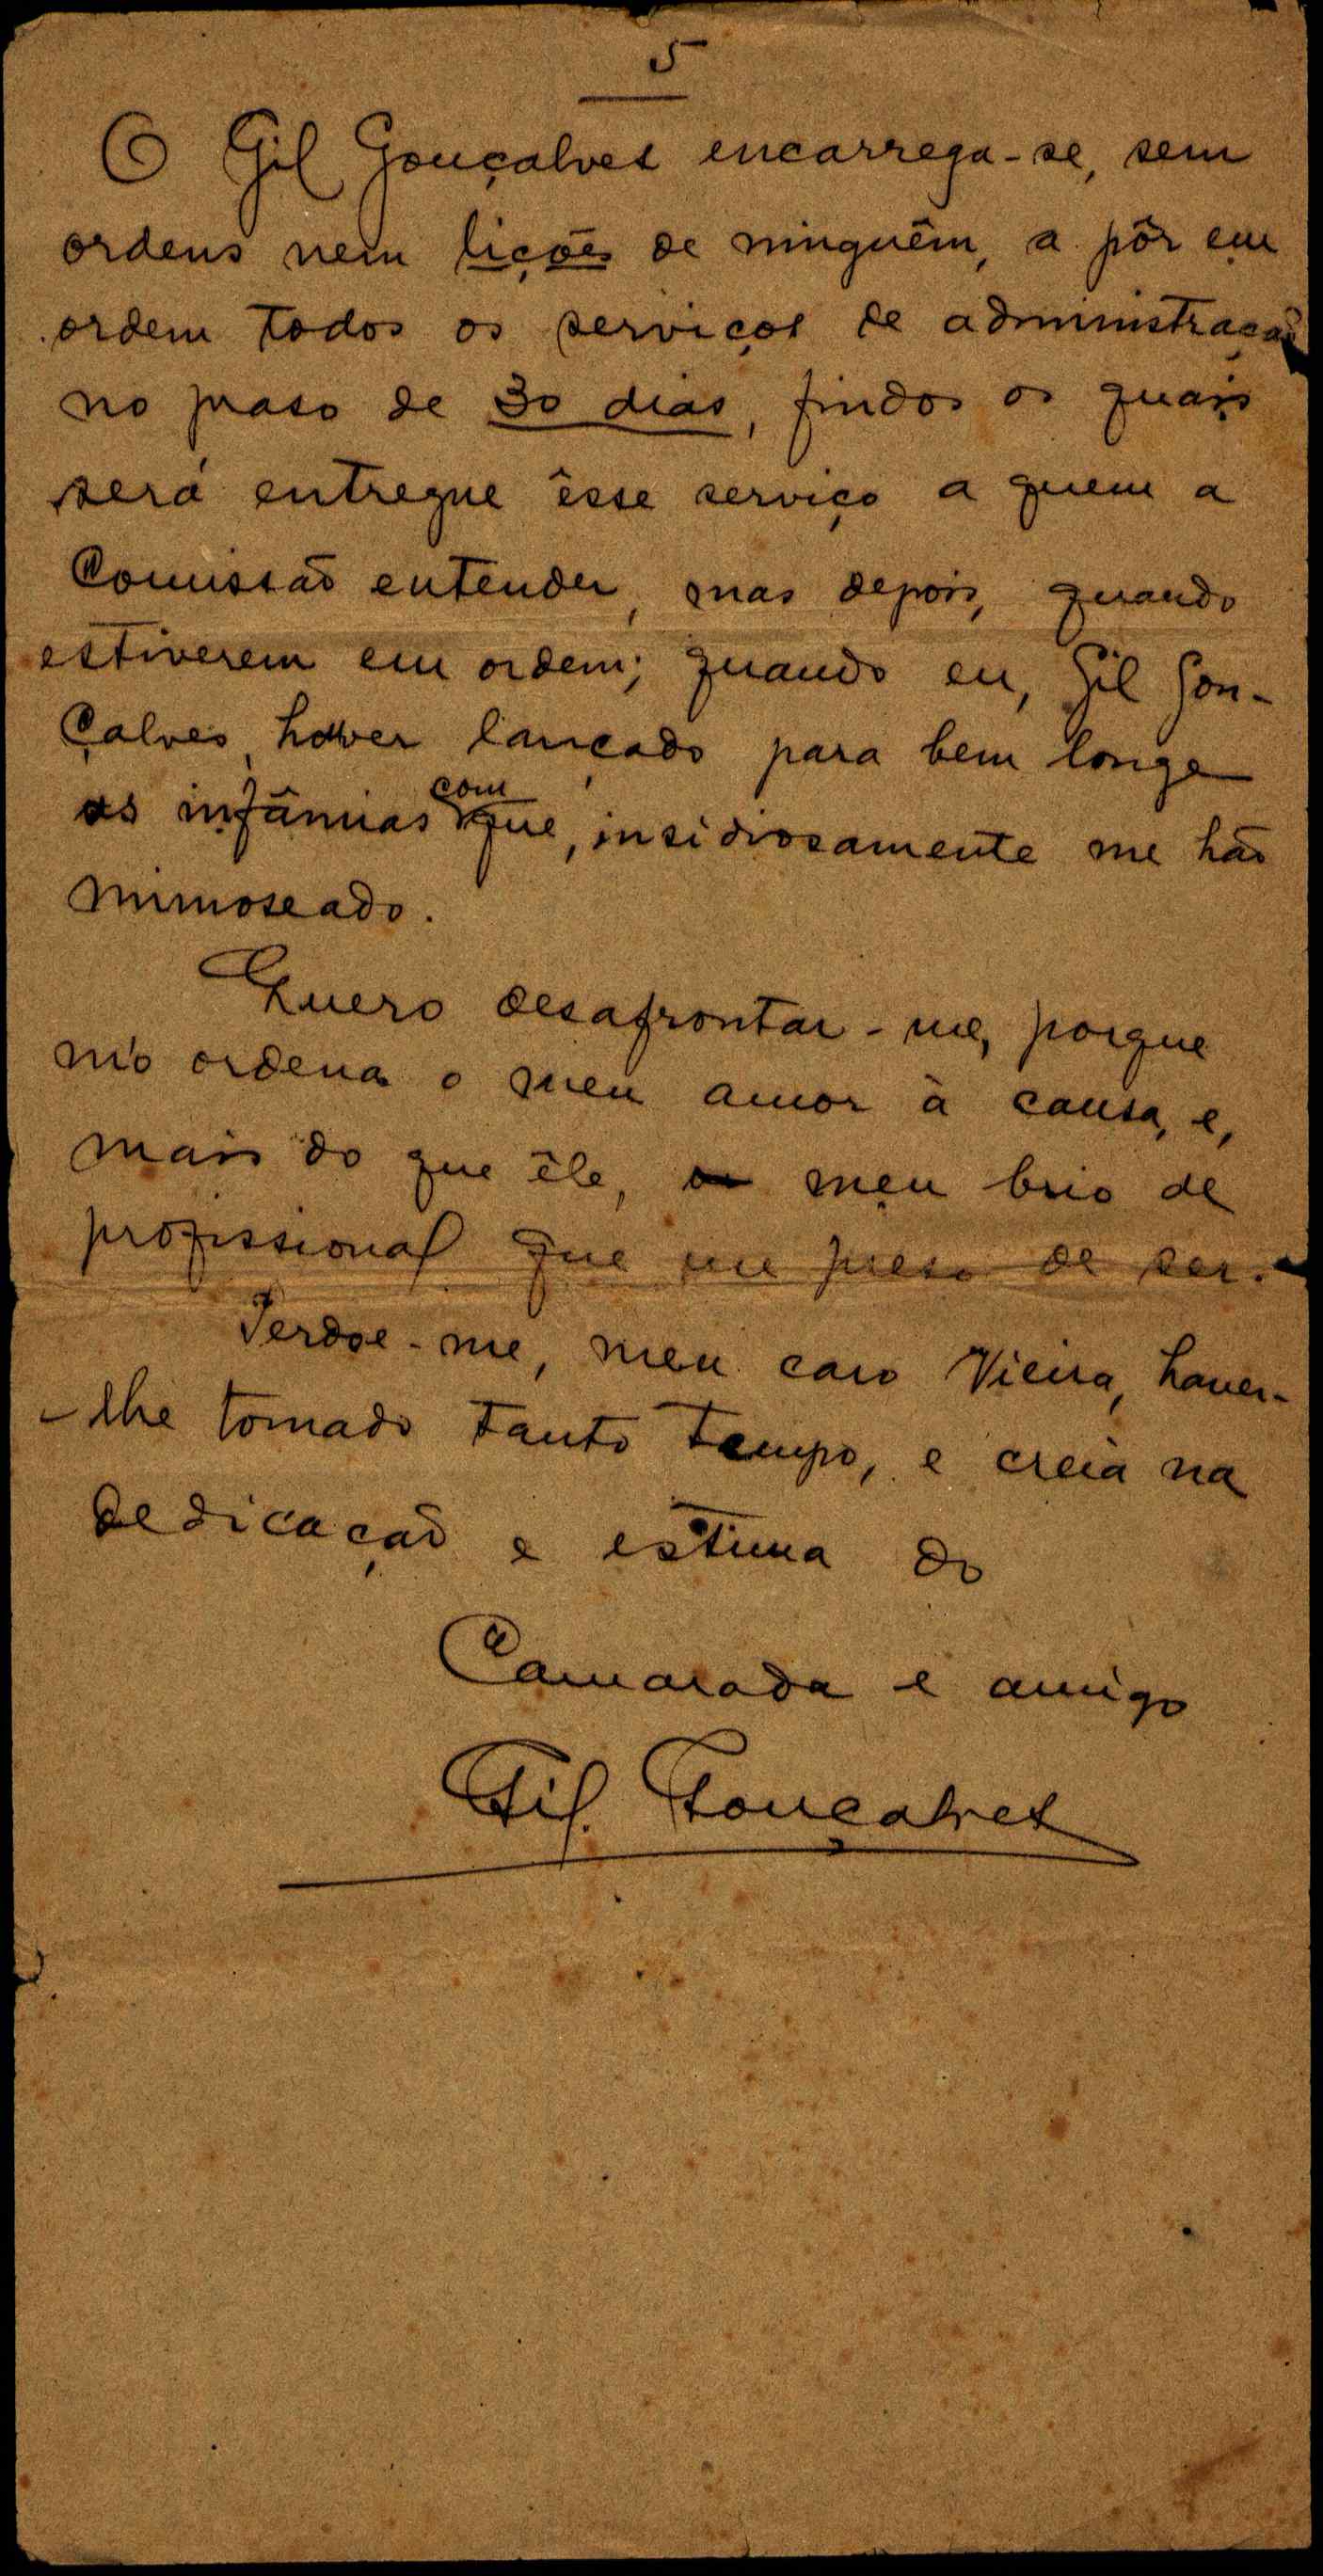 5
O Gil Gonçalves encarrega-se, sem
ordens nem lições de ninguêm, a pôr em
ordem todos os serviços de administração
no praso de 30 dias, findos os quais
será entregue êsse serviço a quem a
Comissão entender, mas depois, quando
estiverem em ordem; quando eu, Gil Gon-
çalves, hover lançado para bem longe
as infâmias com que, insidiosamente me hão
mimoseado.
Quero desafrontar-me, porque
m'o ordena o meu amor à causa, e,
mais do que êle, o meu brio de
profissional que me preso de ser.
Perdoe-me, meu caro Vieira, haver-
-lhe tomado tanto tempo, e creia na
dedicação e estima do
Camarada e amigo
Gil Gonçalves